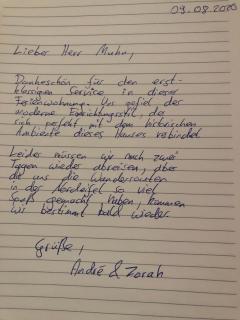 09.08.2020
Lieber Herr Muhn,
Dankeschön für den erst-
klassigen Service in dieser
Ferienwohnung. Uns gefiel der
moderne Einrichtungsstil, der
sich perfekt mit dem historischen
Ambiente dieses Hauses verbindet
Leider müssen wir nach zwei
Tagen wieder abreisen, aber
die uns die Wanderrouten
in der Nordeifel so viel
Spaß gemacht haben, kommen
wir bestimmt bald wieder.
Grüße,
André & Zorah